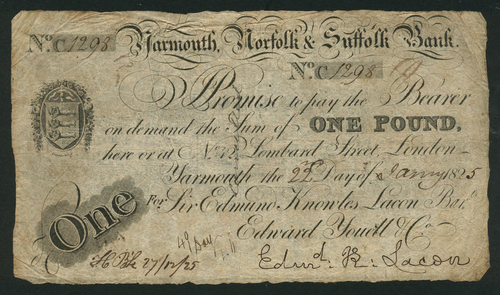 No. C 1298 Yarmouth, Norfolk & Suffolk Bank.
No. C 1298
I Promise to pay the Bearer
on demand the Sum of ONE POUND,
here or at No. Lombard Street, London
Yarmouth the 22 Day of 1825
One
For Sir Edmund Knowles Lacon Bart.
Edward Youell & Co.
27/12/25
Edmd. K. Lacon